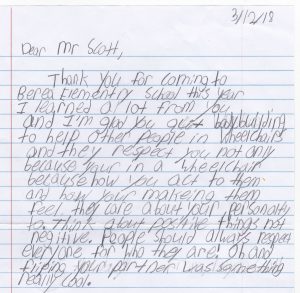 3/12/18
Dear Mr Scott,
Thank you for coming to
Berea Elementry School this year
I learned a lot from you
and I'm glad you got bodybuilding
to help other people in wheelchairs
and they respect you not only
because your in a wheelchair
because how you act to them
an how your makeing them
feel they care about your personalty
to. Think about positive things not
negitive. People should always respect
everyone for who they are! Oh and,
fliping your partner was something
really cool.